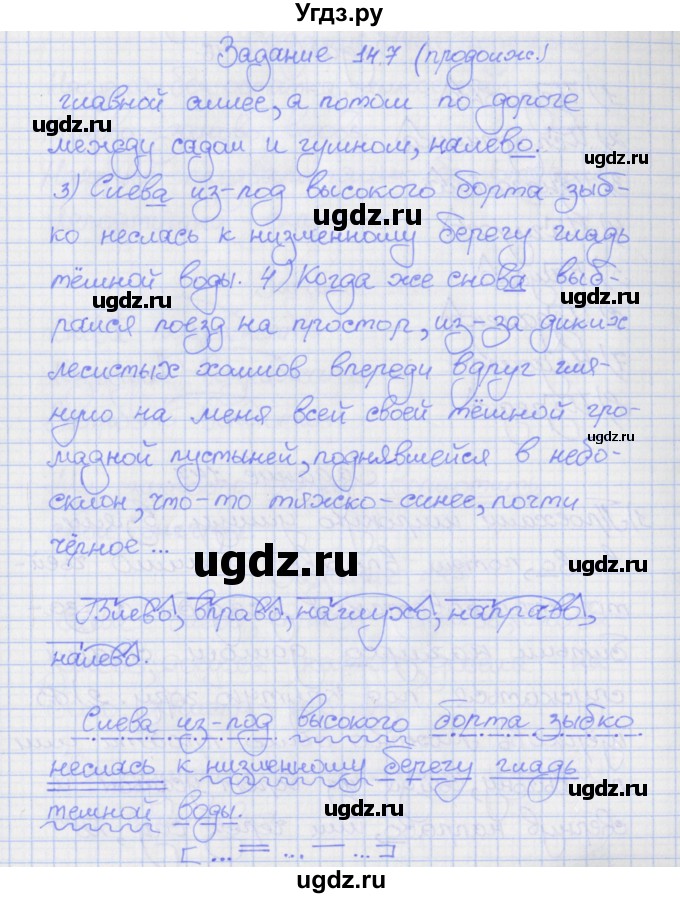 Угдз.ру
Задание 147 (продолж.)
главной аллее, а потом по дороге
между садом и гумном, налево.
3) Слева из-под высокого борта зыб-
ко неслась к низменному берегу гладь
тёмной воды. 4) Когда же снова выб-
рался поезд на простор, из-за диких
лесистых холмов впереди вдруг гля-
нуло на меня всей своей тёмной гро-
мадной пустыней, поднявшейся в небо-
склон, что-то тяжко-синее, почти
чёрное...
Влево, вправо, наглухо, направо,
налево.
Слева из-под высокого борта зыбко
неслась к низменному берегу гладь
темной воды.
[... = ... — ...]
ugdz.ru
ugdz.ru
ugdz.ru
ugdz.ru
ugdz.ru
ugdz.ru
ugdz.ru
ugdz.ru
ugdz.ru
ugdz.ru
ugdz.ru
ugdz.ru
ugdz.ru